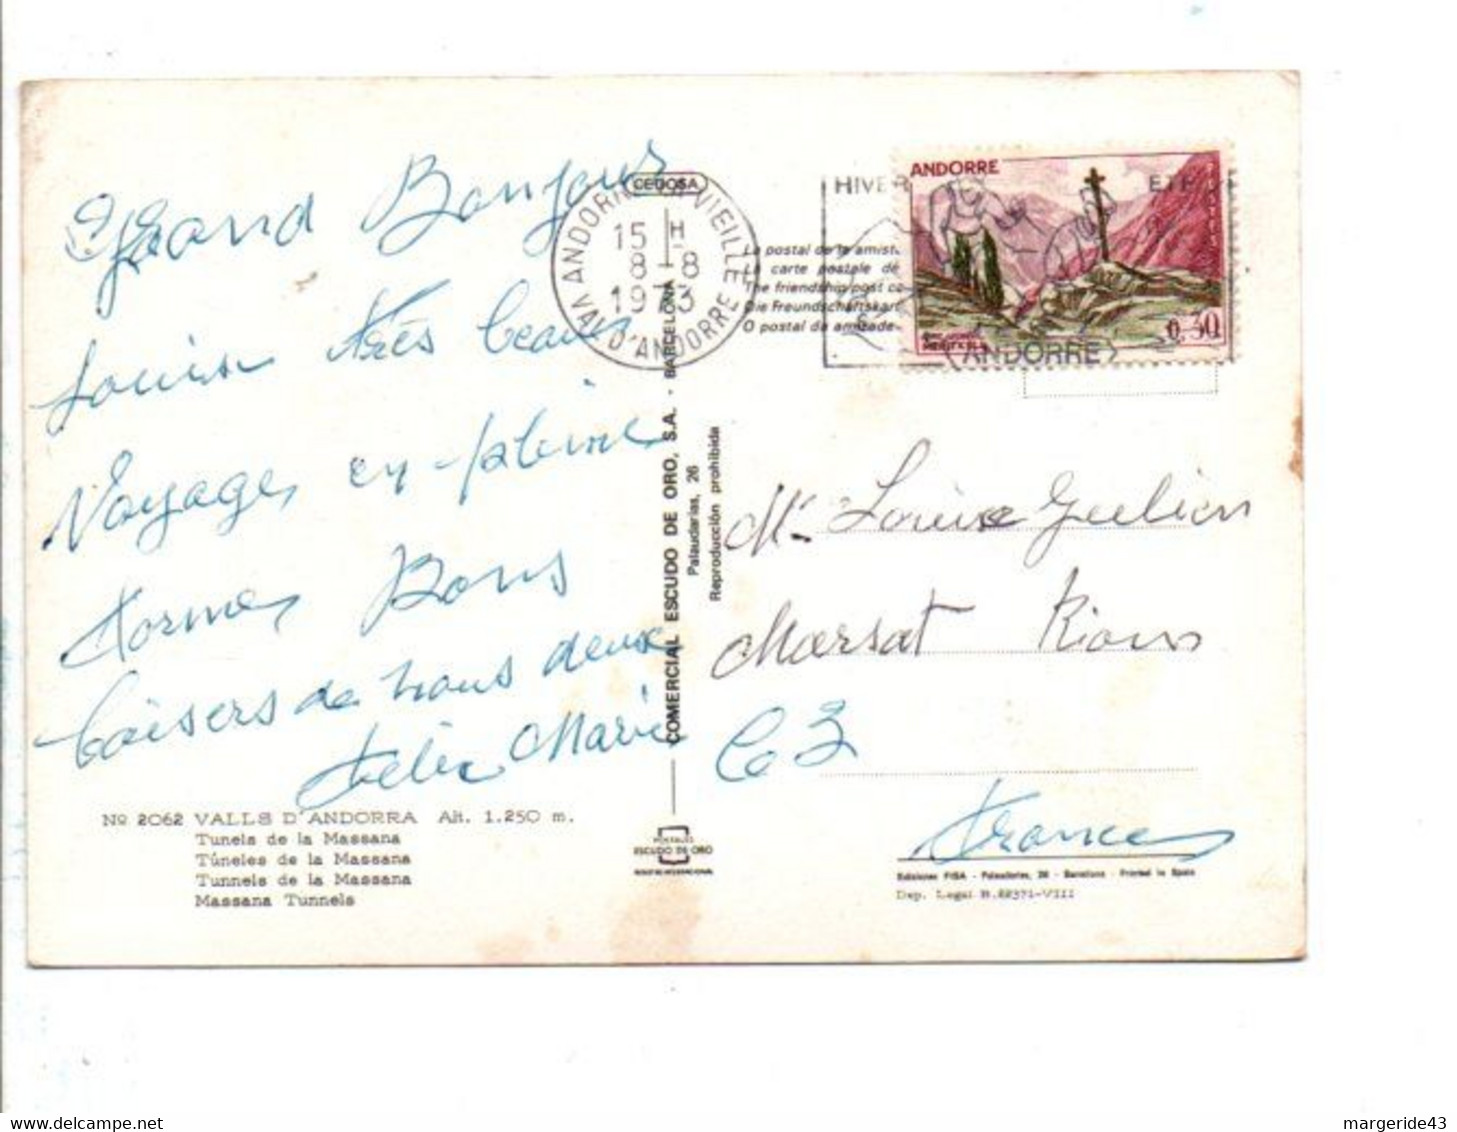 Grand Bonjour
Louise très beau
Voyages en pleine
formes Bons
baisers de nous deux
Marie
No 2062 VALLS D'ANDORRA Alt. 1.250 m.
Tunels de la Massana
Túneles de la Massana
Tunnels de la Massana
Massana Tunnels
CEDOSA
ANDORRE LA VIEILLE
15 H
8-8
1973
VAL D'ANDORRE
COMERCIAL ESCUDO DE ORO, S.A. - BARCELONA
Palaudarias, 26
Reproducción prohibida
POSTALES
ESCUDO DE ORO
La postal de la amist
La carte postale de
The friendship post ca
Die Freundschaftskar
O postal da amizade
HIVER
ETE
ANDORRE
ANDORRE
0,30
Me Louise Gulien
Marsat Riom
63
France
Ediciones FISA - Palaudarias, 26 - Barcelona - Printed in Spain
Dep. Legal B.22371-VIII
margeride43